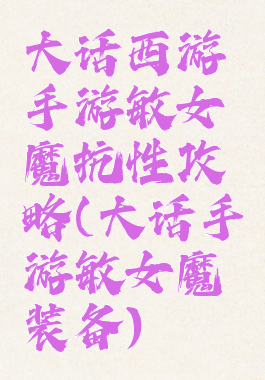 大话西游
手游敏女
魔抗性攻
略(大话手
游敏女魔
装备)